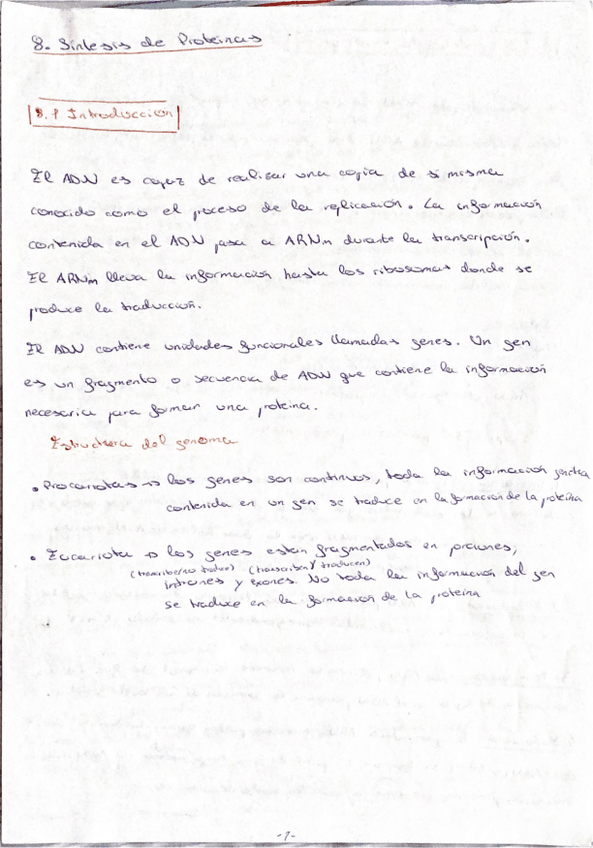 8. Síntesis de Proteínas
8.1 Introducción
El ADN es capaz de realizar una copia de si misma
conocido como el proceso de la replicación. La información
contenida en el ADN pasa a ARNm durante la transcripción.
El ARNm lleva la información hasta los ribosomas donde se
produce la traducción.
El ADN contiene unidades funcionales llamadas genes. Un gen
es un fragmento o secuencia de ADN que contiene la información
necesaria para formar una proteína.
Estructura del genoma
• Procariotas → los genes son continuos, toda la información
contenida en un gen se traduce en la formación de la proteína
• Eucariota → los genes estan fragmentados en porciones,
(transcribe/no traduce) (transcriben y traducen)
intrones y exones. No toda la información del gen
se traduce en la formación de la proteína
-1-